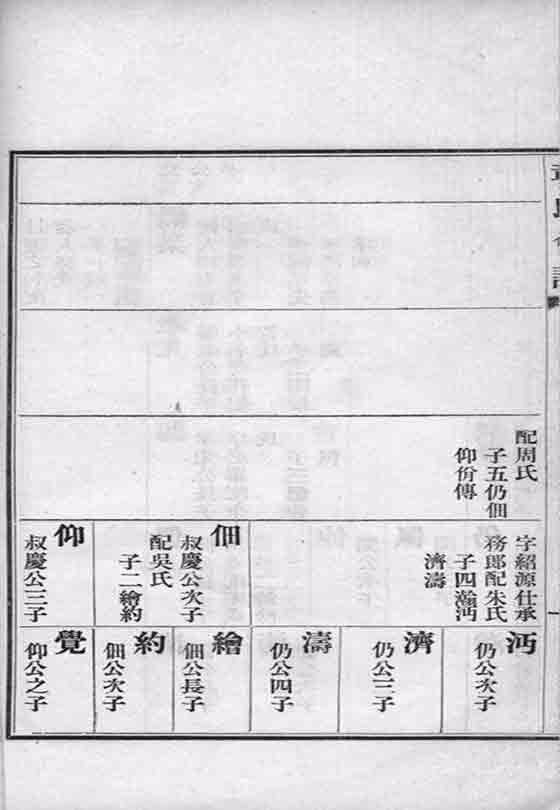 配周氏
子五仍佃
仰佾傳
字紹源仕承
務郎配朱氏
子四瀚沔
濟濤
佃
叔慶公次子
配吳氏
子二繪約
仰
叔慶公三子
沔
仍公次子
濟
仍公三子
濤
仍公四子
繪
佃公長子
約
佃公次子
覺
仰公之子